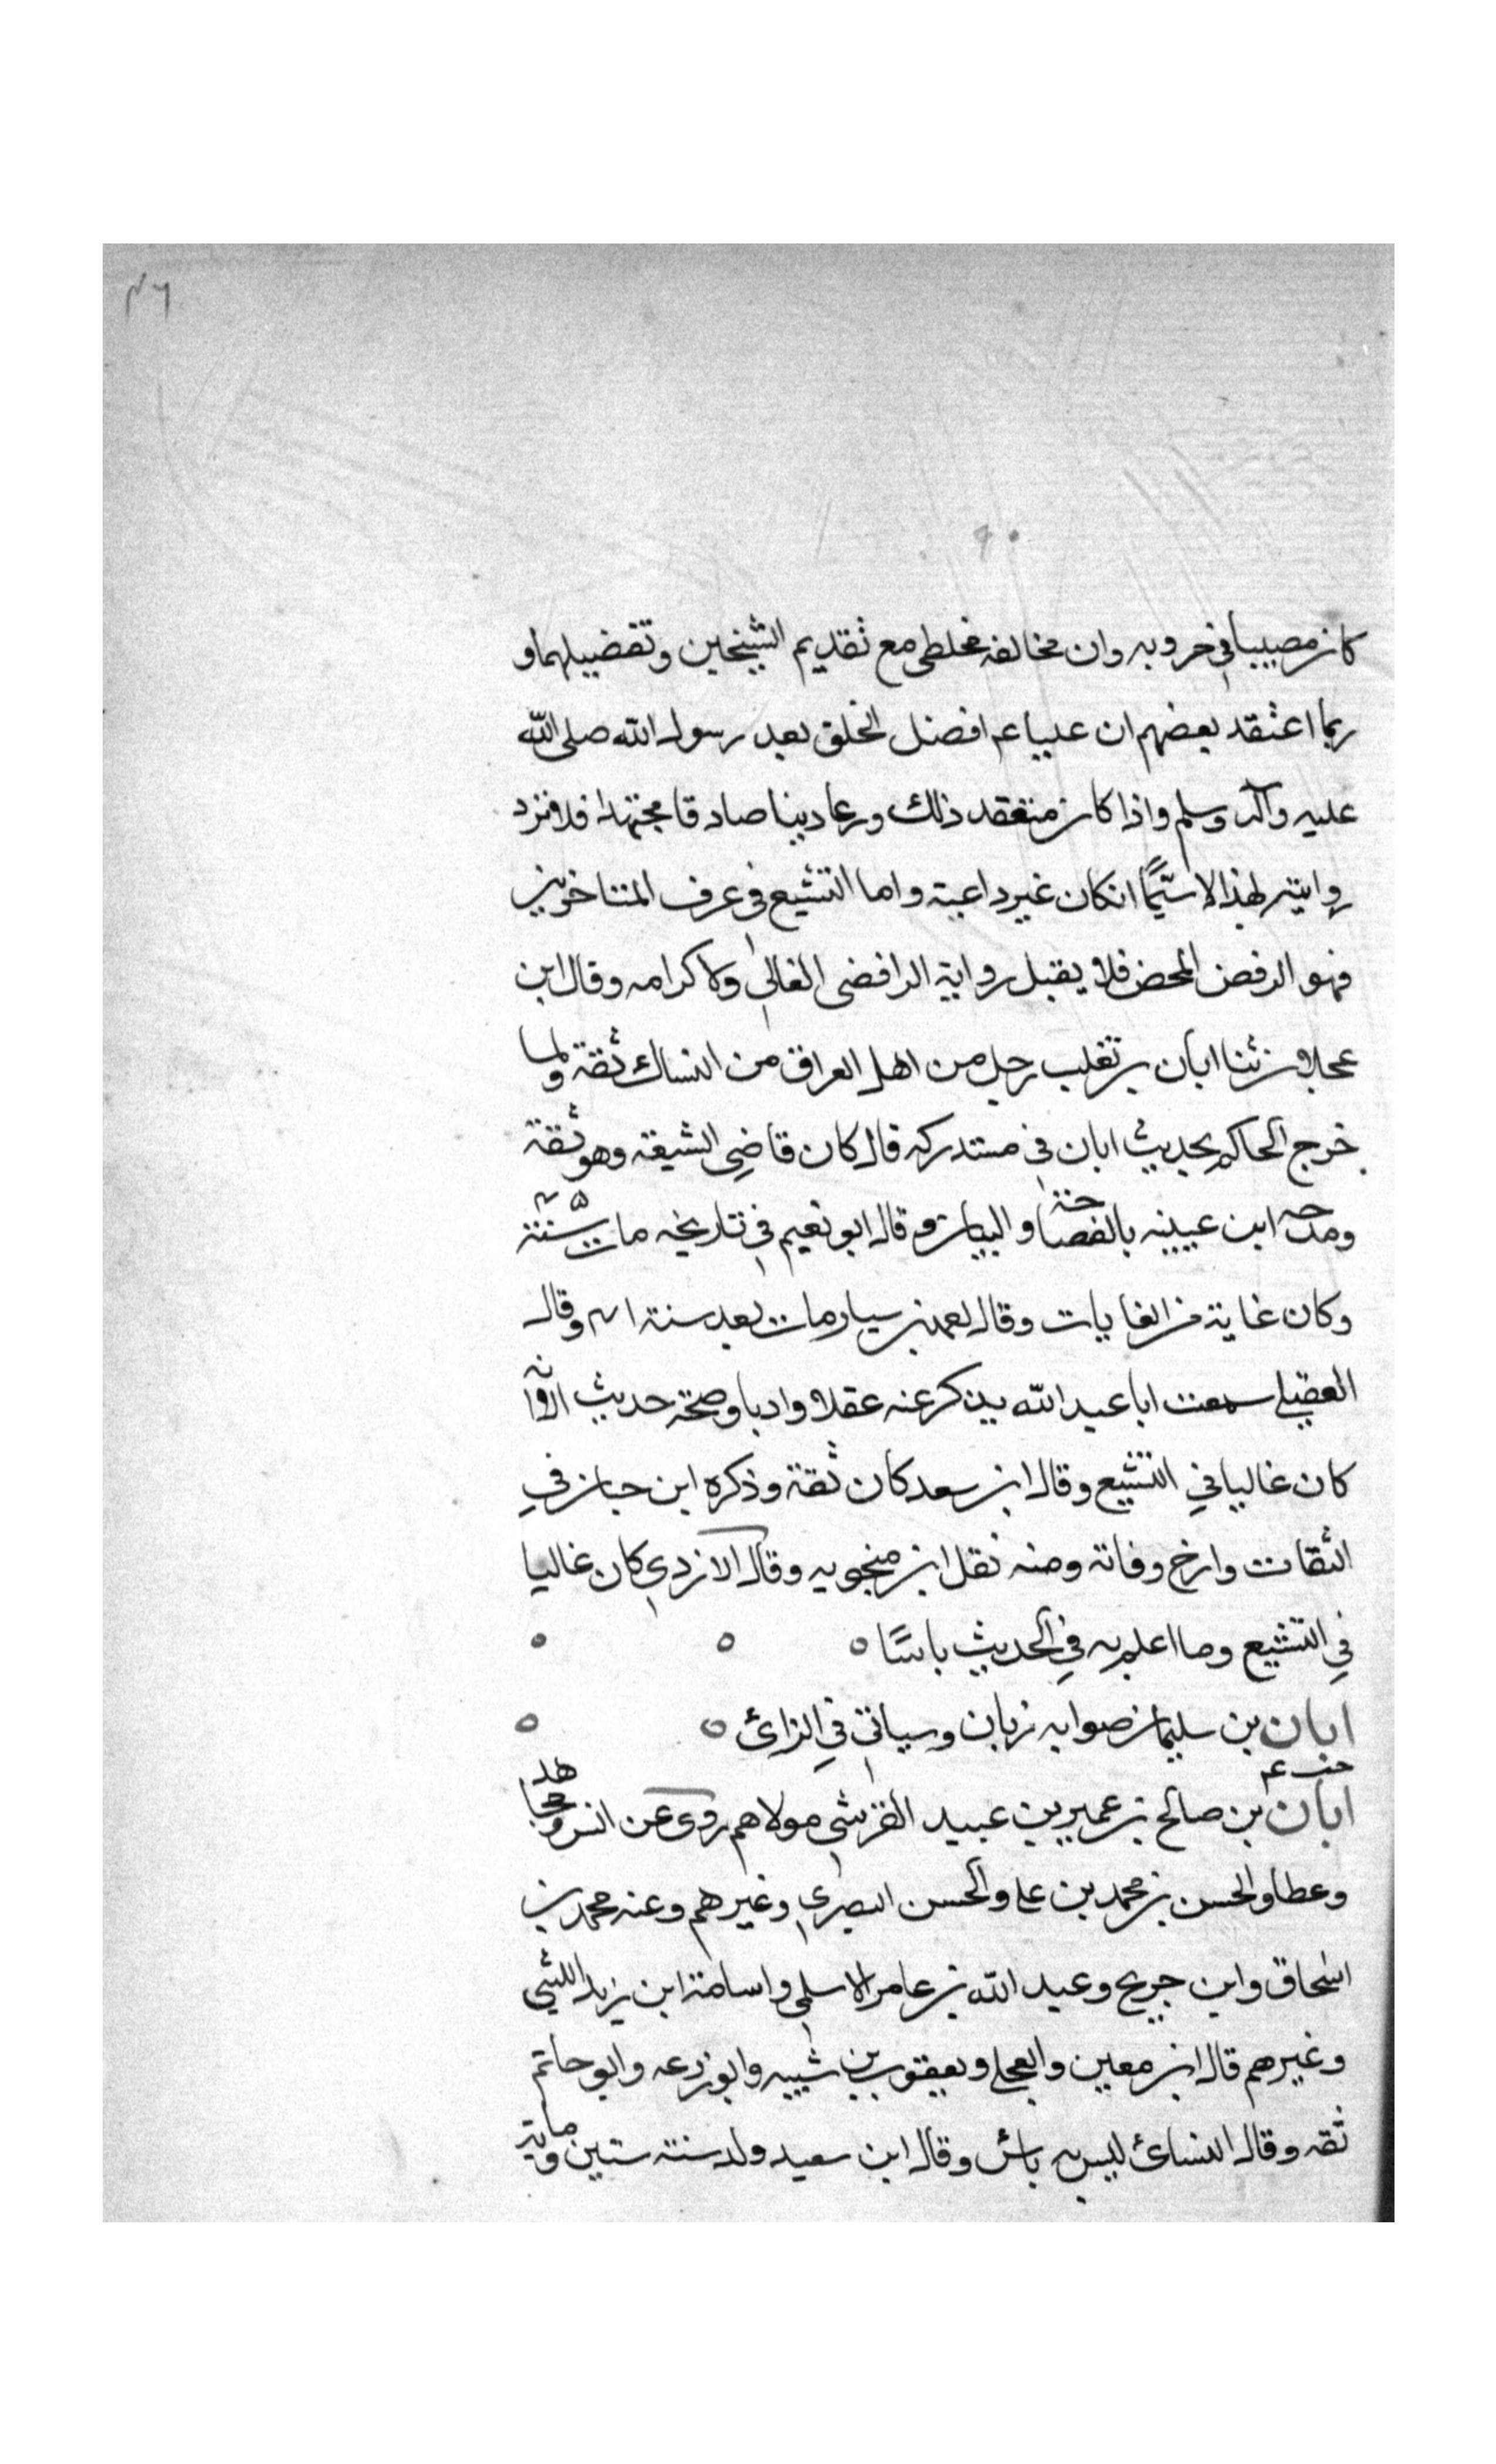 ٤٦
كان مصيبا في حروبه وان مخالفه مخطى مع تقديم الشيخين وتفضيلهما و
ربما اعتقد بعضهم ان عليا عم افضل الخلق بعد رسول الله صلى الله
عليه وآله وسلم واذا كان متعقد ذلك ورعا دينا صادقا مجتهدا فلا فترد
روايته لهذا لا سيّمًا انكان غير داعية واما التشيع في عرف المتاخرين
فهو الرفض المحض فلا يقبل رواية الرافضى الغالى ولا كرامه وقال ابن
عجلان ثنا ابان بن تغلب رجل من اهل العراق من النساك ثقة ولما
خرج الحاكم بحديث ابان في مستدركه قال كان قاضي الشيعة وهو ثقة
ومدحه ابن عيينه بالفصاحة والبيان وقال ابو نعيم في تاريخه مات سنة
وكان غاية من الغايات وقال لعمر بن سيار مات بعد سنة ١٤١ وقال
العقيلي سمعت ابا عبد الله يذكر عنه عقلا وادبا وصحة حديث الا انه
كان غاليا في التشيع وقال ابن سعد كان ثقة وذكره ابن حبان في
الثقات وارخ وفاته ومنه نقل ابن منجويه وقال الازدي كان غاليا
في التشيع وما اعلم به في الحديث باسًا ه ه ه
ابان بن سليمان صوابه زبان وسياتي في الزائ ه ه
خت عم
ابان بن صالح بن عمير بن عبيد القرشي مولاهم روى عن انس ومجاهد
وعطا والحسن بن محمد بن على والحسن البصري وغيرهم وعنه محمد بن
اسحاق وابن جريج وعبد الله بن عامر الاسلمي واسامة ابن زيد الليثي
وغيرهم قال ابن معين والعجلي ويعقوب بن شيبه وابو زرعه وابو حاتم
ثقه وقال النسائ ليس به باس وقال ابن سعيد ولد سنة ستين ومات